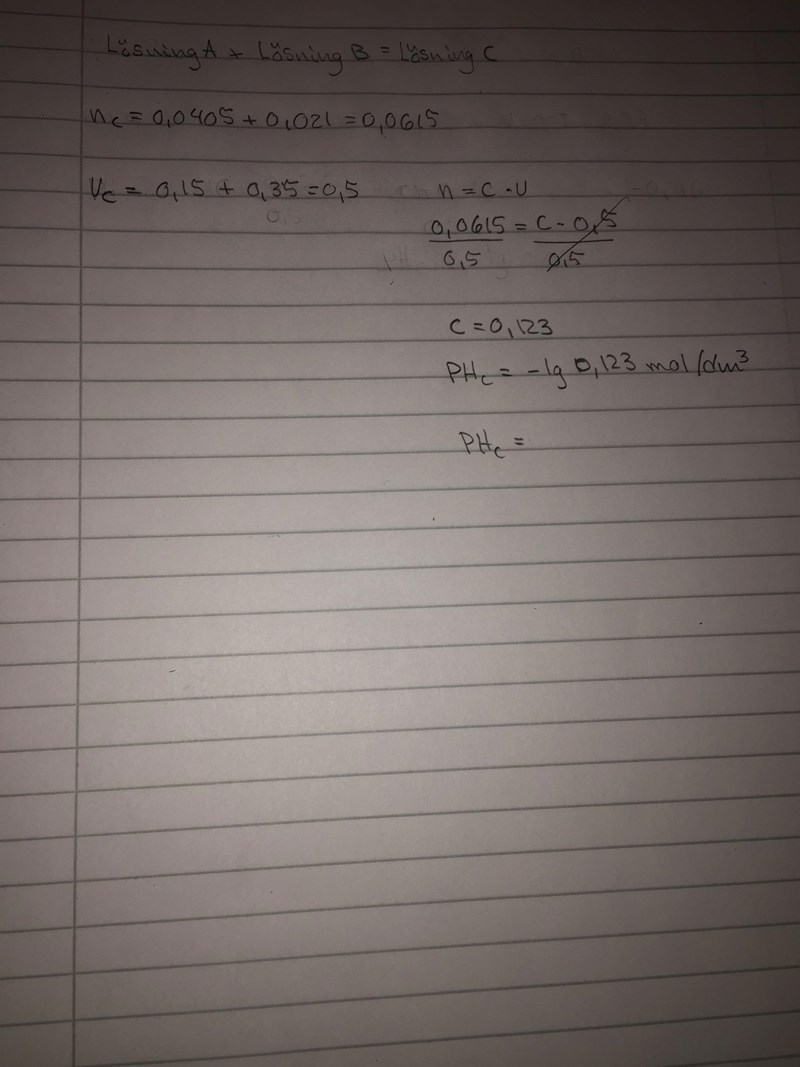 Lösning A + Lösning B = Lösning C
nc = 0,0405 + 0,021 = 0,0615
Vc = 0,15 + 0,35 = 0,5
n = C · V
0,0615 = C · 0,5
0,5 0,5
C = 0,123
PHc = -lg 0,123 mol/dm³
PHc =